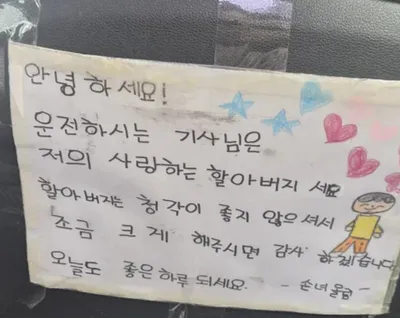 안녕하세요!
운전하시는 기사님은
저의 사랑하는 할아버지 세요
할아버지는 청각이 좋지 않으셔서
조금 크게 해주시면 감사 하겠습니다
오늘도 좋은하루 되세요.
- 손녀 올림 -